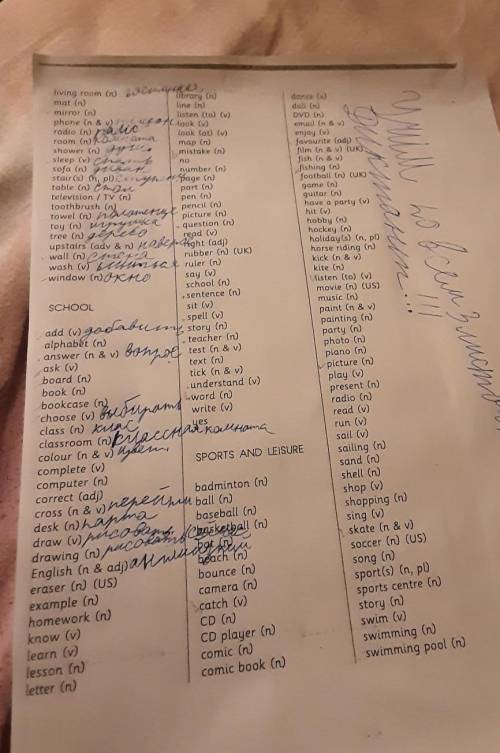 living room (n) гостиная
mat (n)
mirror (n)
phone (n & v)
radio (n) радио
room (n) комната
shower (n) душ
sleep (v) спать
sofa (n) диван
stair(s) (n, pl)
table (n) стол
television / TV (n)
toothbrush (n)
towel (n) полотенце
toy (n) игрушка
tree (n) дерево
upstairs (adv & n) наверх
wall (n) стена
wash (v)
window (n) окно
SCHOOL
add (v) добавить
alphabet (n)
answer (n & v) вопрос
ask (v)
board (n)
book (n)
bookcase (n)
choose (v) выбирать
class (n) клас
classroom (n) классная комната
colour (n & v) цвет
complete (v)
computer (n)
correct (adj)
cross (n & v) перейти
desk (n) парта
draw (v) рисовать
drawing (n) рисовать
English (n & adj) английский
eraser (n) (US)
example (n)
homework (n)
know (v)
learn (v)
lesson (n)
letter (n)
library (n)
line (n)
listen (to) (v)
look (v)
look (at) (v)
map (n)
mistake (n)
no
number (n)
page (n)
part (n)
pen (n)
pencil (n)
picture (n)
question (n)
read (v)
right (adj)
rubber (n) (UK)
ruler (n)
say (v)
school (n)
sentence (n)
sit (v)
spell (v)
story (n)
teacher (n)
test (n & v)
text (n)
tick (n & v)
understand (v)
word (n)
write (v)
yes
SPORTS AND LEISURE
badminton (n)
ball (n)
baseball (n)
basketball (n)
bat (n)
beach (n)
bounce (n)
camera (n)
catch (v)
CD (n)
CD player (n)
comic (n)
comic book (n)
dance (v)
doll (n)
DVD (n)
email (n & v)
enjoy (v)
favourite (adj)
film (n & v) (UK)
fish (n & v)
fishing (n)
football (n) (UK)
game (n)
guitar (n)
have a party (v)
hit (v)
hobby (n)
hockey (n)
holiday(s) (n, pl)
horse riding (n)
kick (n & v)
kite (n)
listen (to) (v)
movie (n) (US)
music (n)
paint (n & v)
painting (n)
party (n)
photo (n)
piano (n)
picture (n)
play (v)
present (n)
radio (n)
read (v)
run (v)
sail (v)
sailing (n)
sand (n)
shell (n)
shop (v)
shopping (n)
sing (v)
skate (n & v)
soccer (n) (US)
song (n)
sport(s) (n, pl)
sports centre (n)
story (n)
swim (v)
swimming (n)
swimming pool (n)
Учим по всем 3 листам !!!